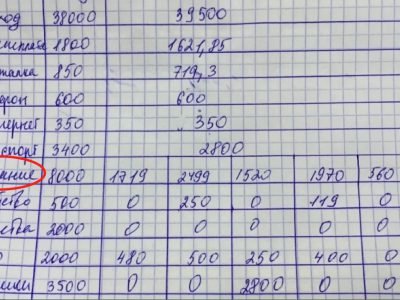 ход 38000 39500
мплата 1800 1621,85
850 719,3
фон 600 600
ернет 350 350
спорт 3400 2800
ание 8000 1719 2499 1520 1970 560
ство 500 0 250 0 119 0
ства 2000 0 0 0 0 0
о 2000 480 500 250 400 0
ики 3500 0 0 2800 0 0